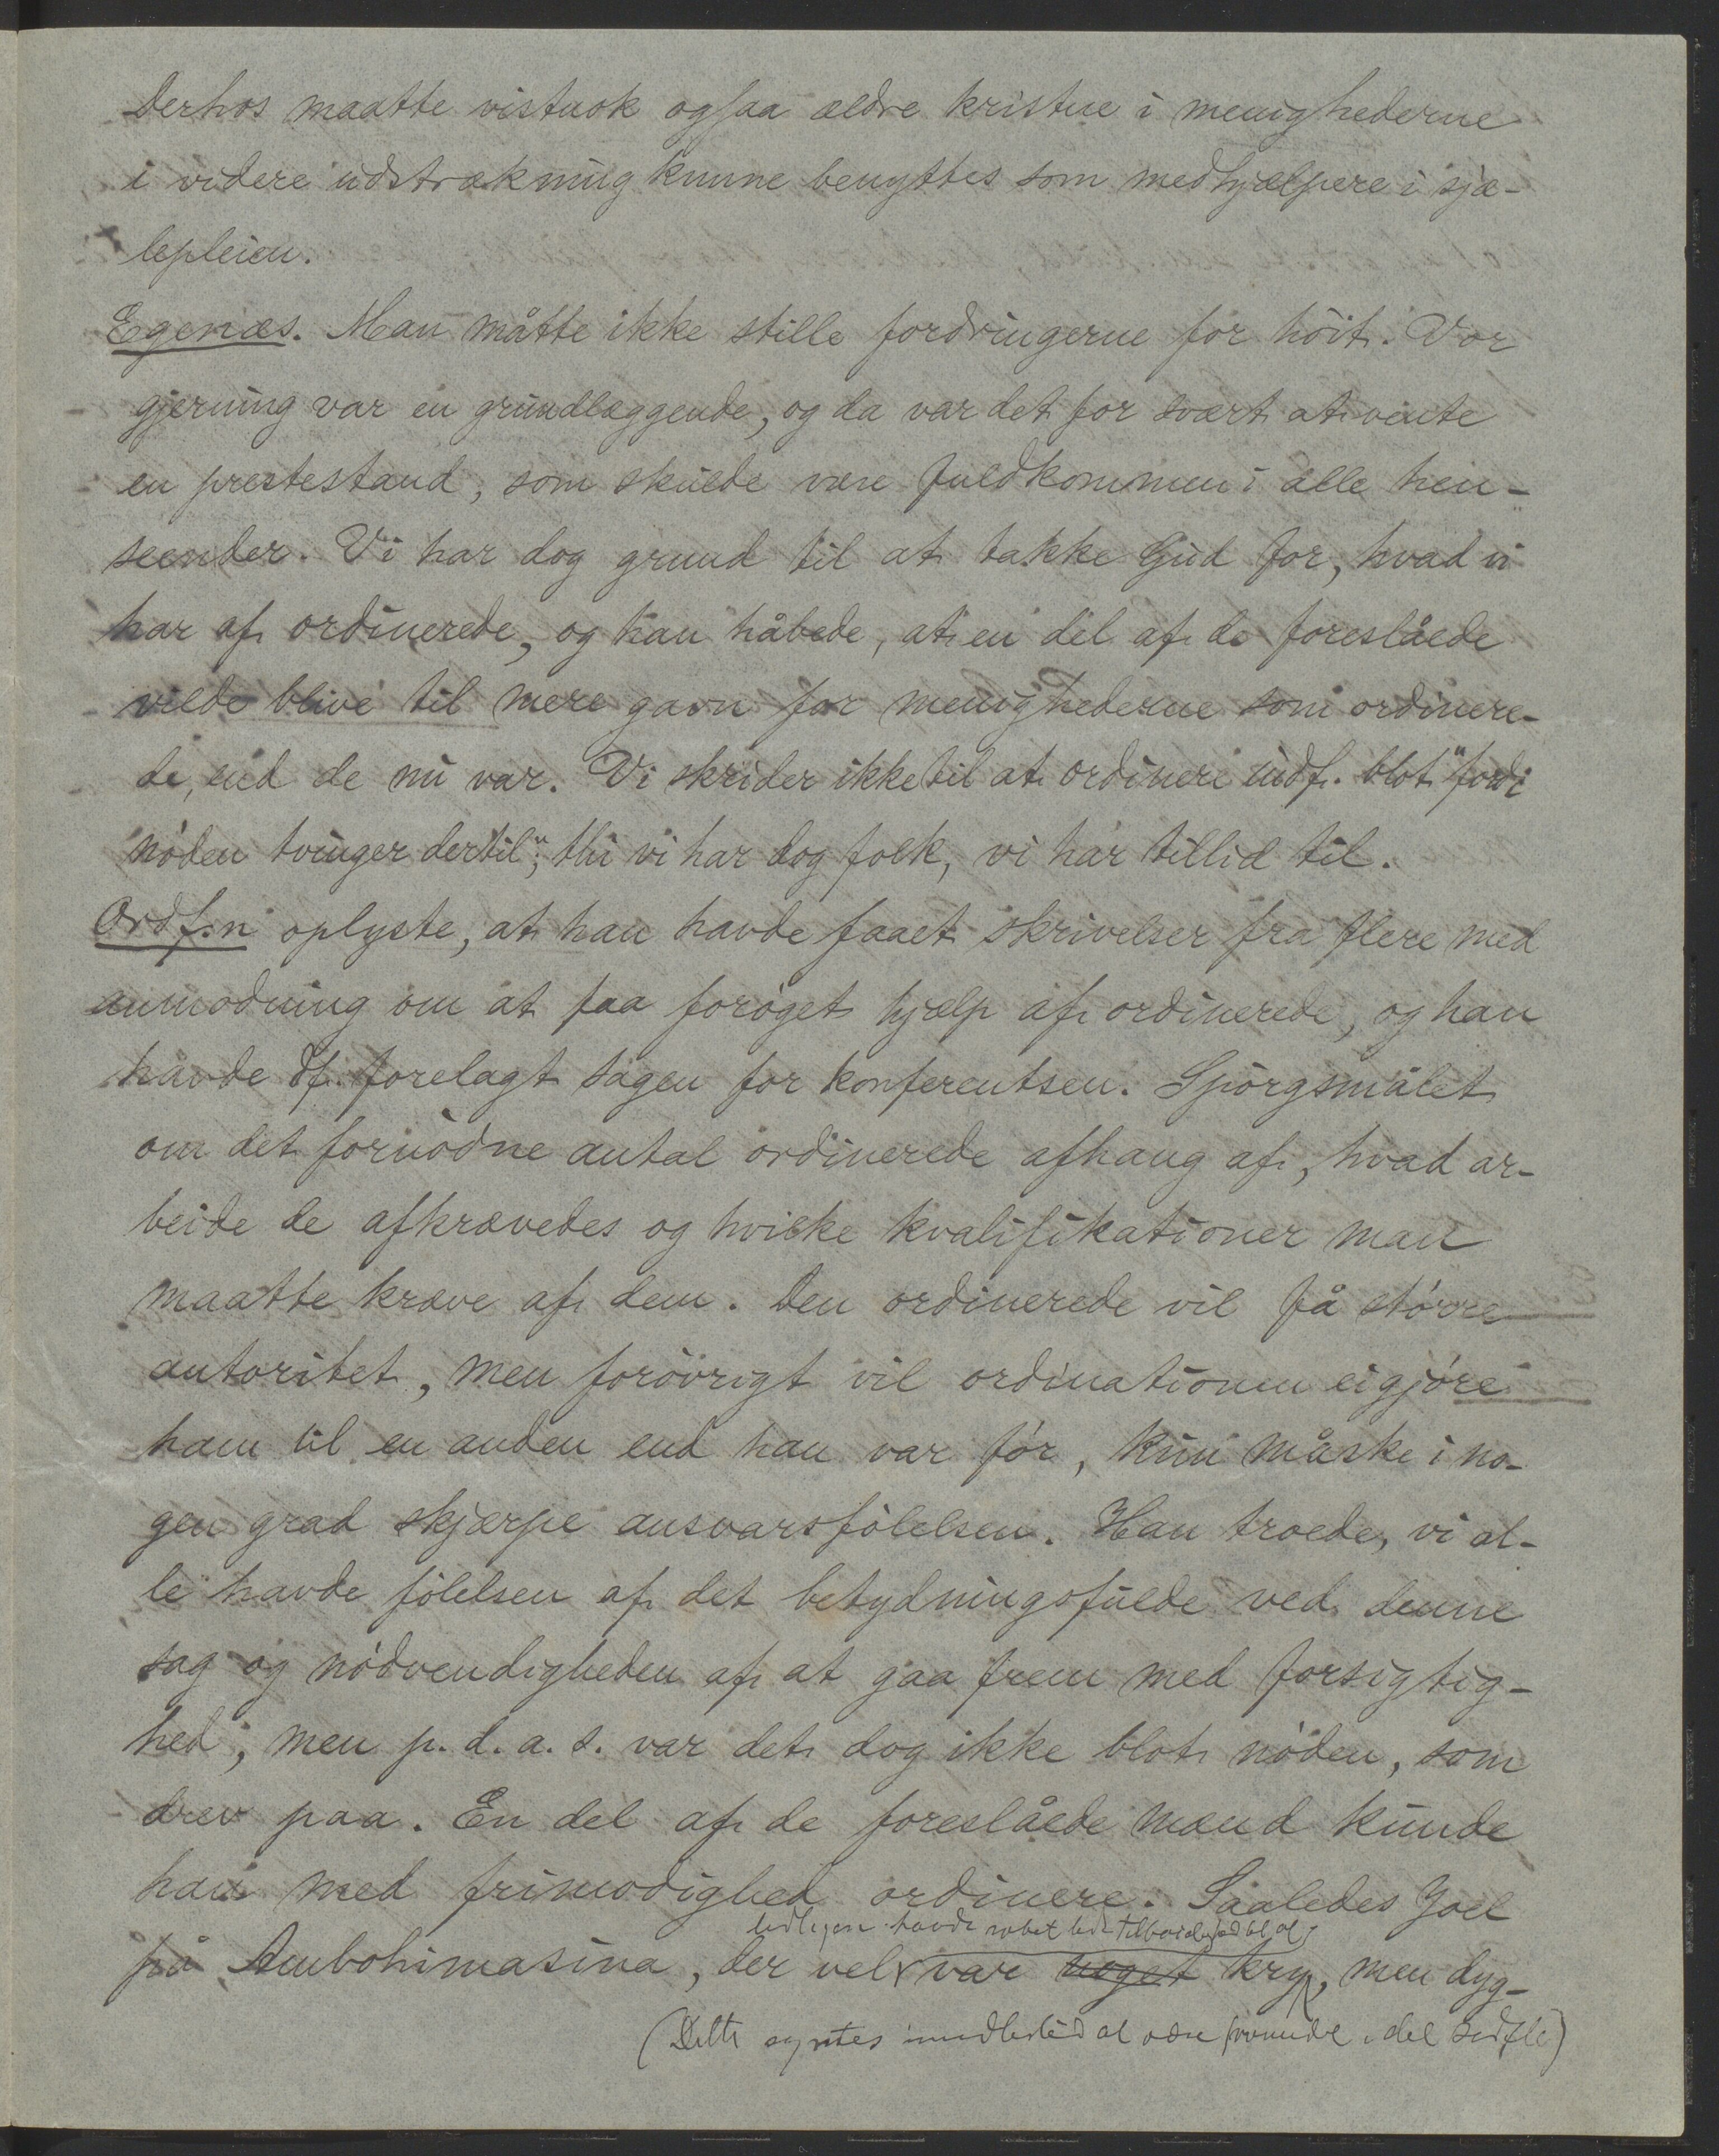 Derhos maatte vistnok ogsaa ældre kristne i menighederne
i videre udstrækning kunne benyttes som medhjælpere i sjæ-
lepleien.
Egenæs. Man måtte ikke stille fordringerne for höit. Vor
gjerning var en grundlæggende, og da var det for svært at vente
en prestestand, som skulde være fuldkommen i alle hen-
seender. Vi har dog grund til at takke Gud for, hvad vi
har af ordinerede, og han håbede, at en del af de foreslåede
vilde blive til mere gavn for menighederne som ordinere-
de, end de nu var. Vi skrider ikke til at ordinere indf. blot "fordi
nöden tvinger dertil"; thi vi har dog folk, vi har tillid til.
Ordf.n oplyste, at han havde faaet skrivelser fra flere med
anmodning om at faa foröget hjælp af ordinerede, og han
havde df. forelagt sagen for konferentsen. Spörgsmålet
om det fornödne antal ordinerede afhang af, hvad ar-
beide de afkrævedes og hvilke kvalifikationer man
maatte kræve af dem. Den ordinerede vil få större
autoritet, men forövrigt vil ordinationen ei gjöre
ham til en anden end han var för, kun måske i no-
gen grad skjærpe ansvarsfölelsen. Han troede, vi al-
le havde fölelsen af det betydningsfulde ved denne
sag og nödvendigheden af at gaa frem med forsigtig-
hed; men p. d. a. s. var det dog ikke blot nöden, som
drev paa. En del af de foreslåede mænd kunde
han med frimodighed ordinere. Saaledes Joel
tidligere havde
på Ambohimasina, der vel var noget kry, men dyg-
(Dette syntes imidlertid at være i det